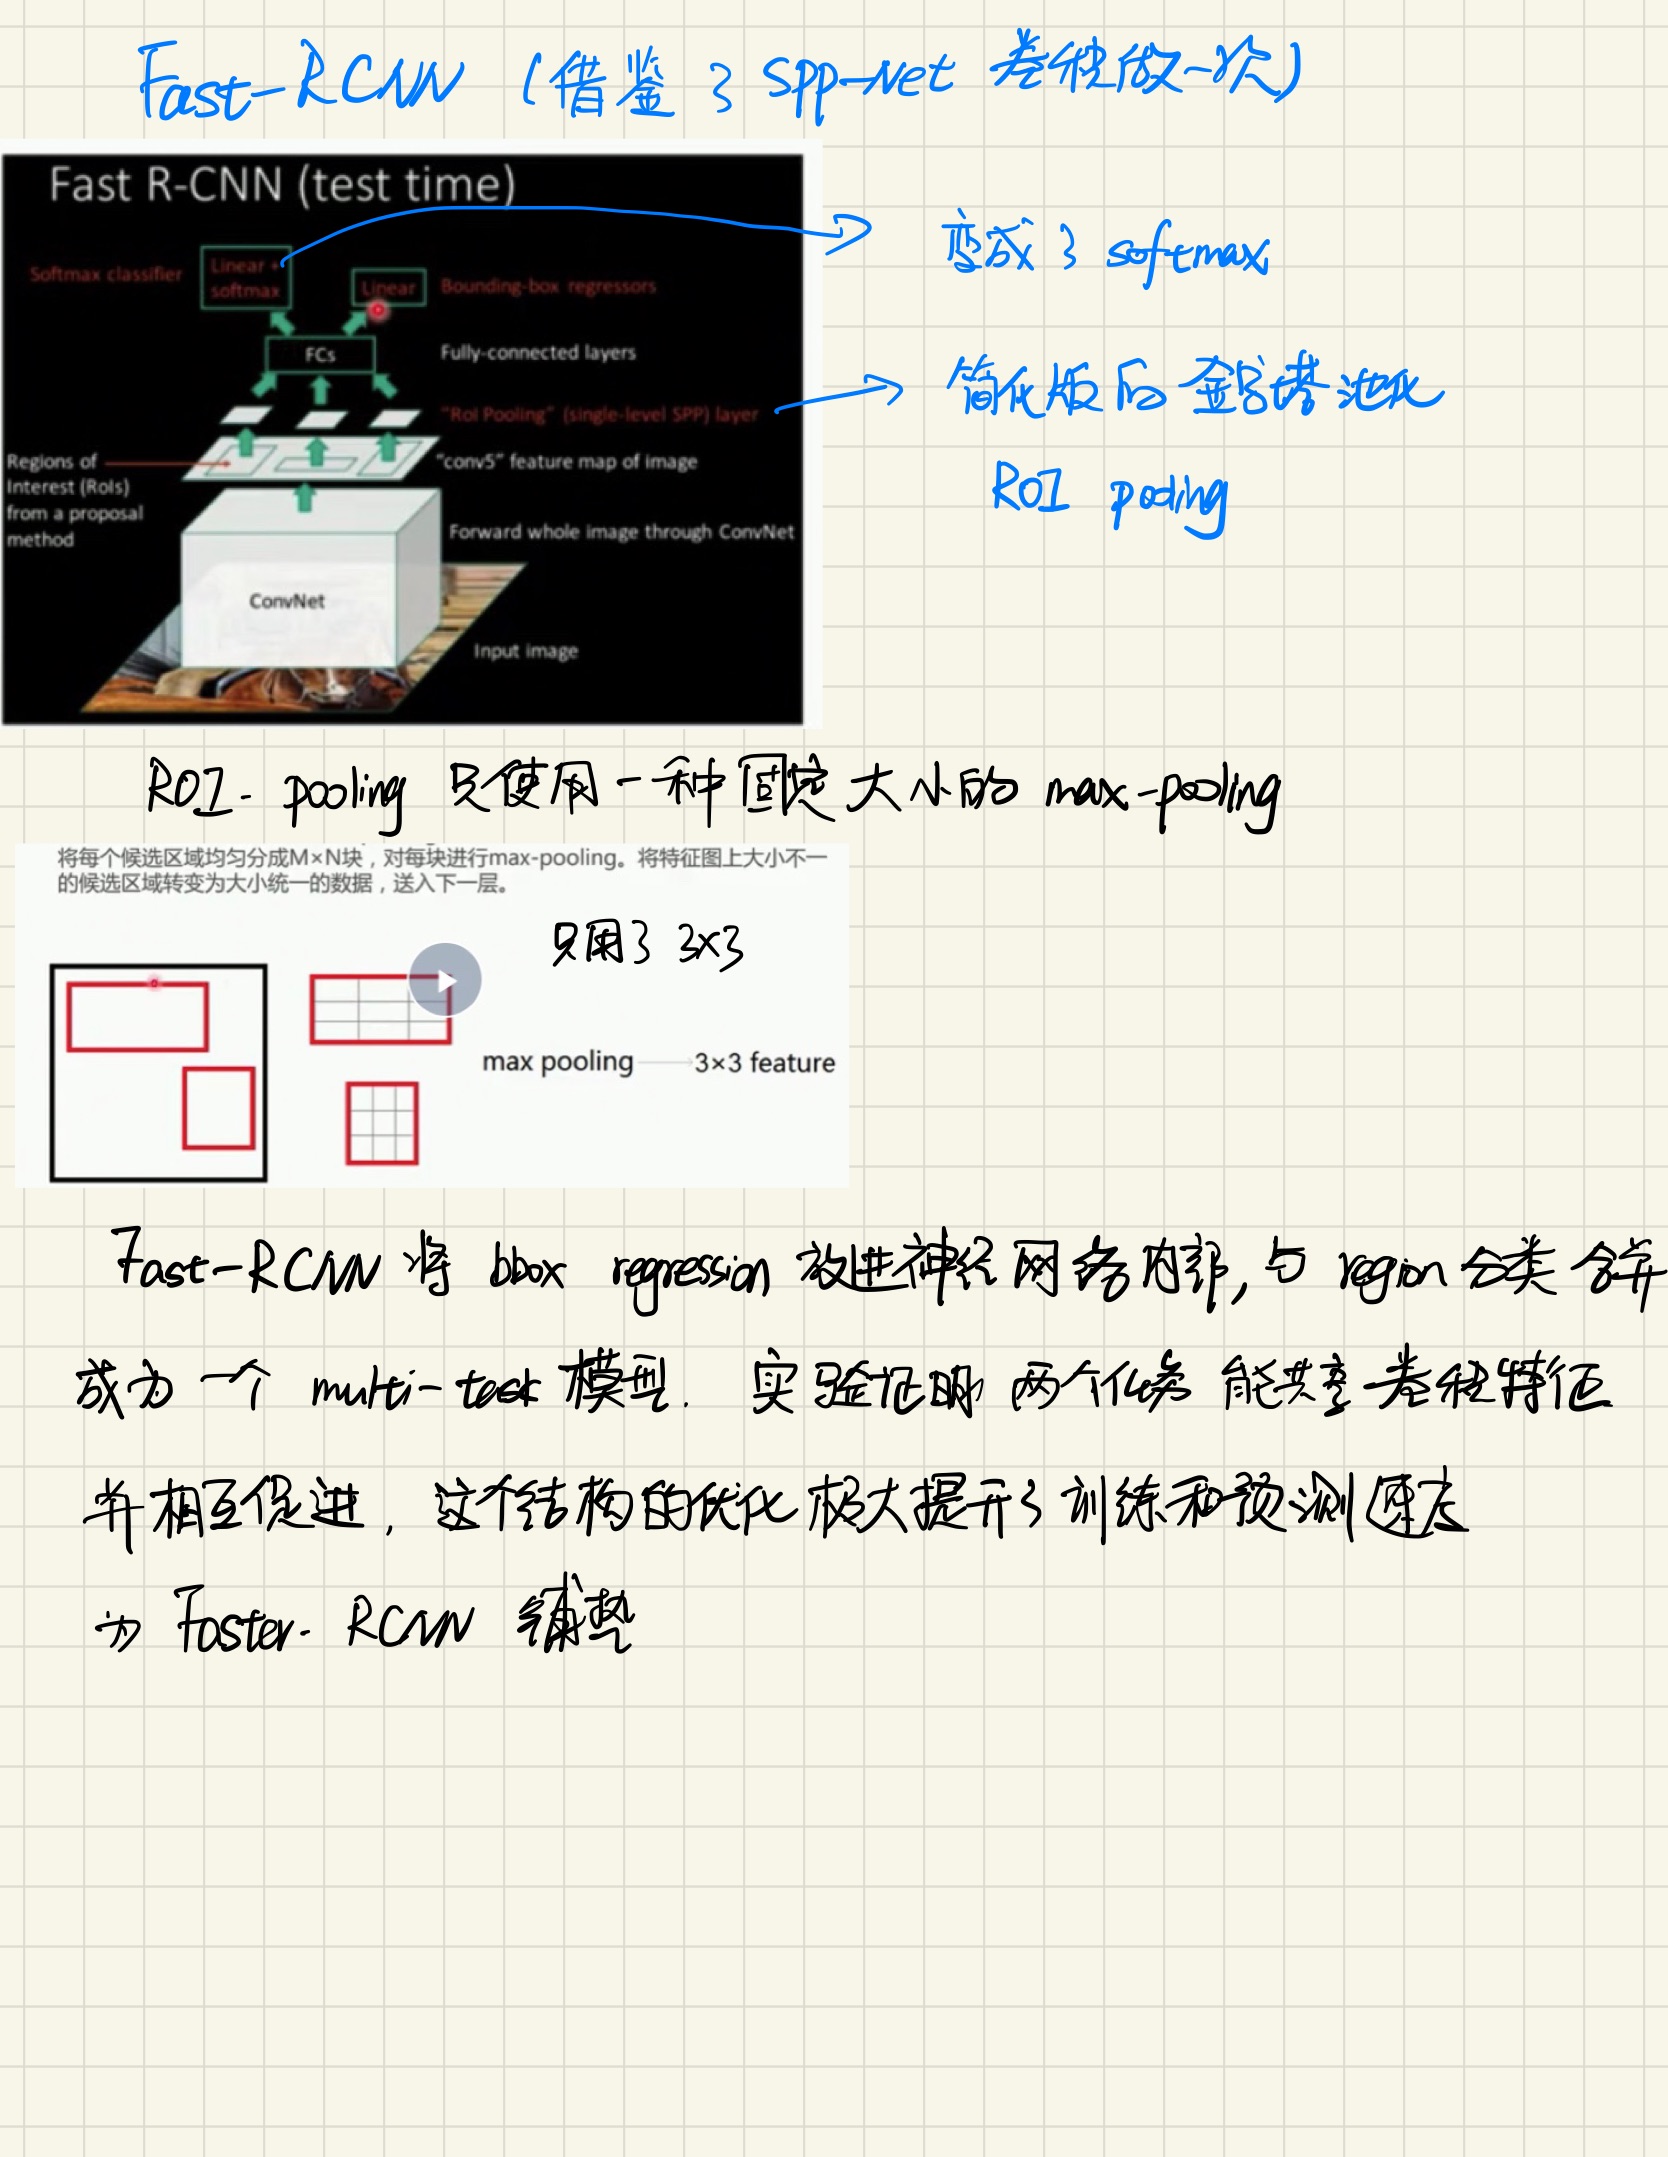 Fast-RCNN (借鉴了 SPP-Net 卷积做一次)
Fast R-CNN (test time)
变成了 softmax
Softmax classifier
Linear +
softmax
Linear
Bounding-box regressors
FCs
Fully-connected layers
简化版的金字塔池化
"RoI Pooling" (single-level SPP) layer
ROI pooling
Regions of
Interest (RoIs)
from a proposal
method
"conv5" feature map of image
Forward whole image through ConvNet
ConvNet
Input image
ROI-pooling 只使用一种固定大小的 max-pooling
将每个候选区域均匀分成M×N块，对每块进行max-pooling。将特征图上大小不一
的候选区域转变为大小统一的数据，送入下一层。
只用了 3×3
max pooling
3×3 feature
Fast-RCNN 将 bbox regression 放进神经网络内部, 与 region 分类合并
成为一个 multi-task 模型. 实验证明 两个任务 能共享卷积特征
并相互促进, 这个结构的优化极大提升了训练和预测速度
为 Faster-RCNN 铺垫